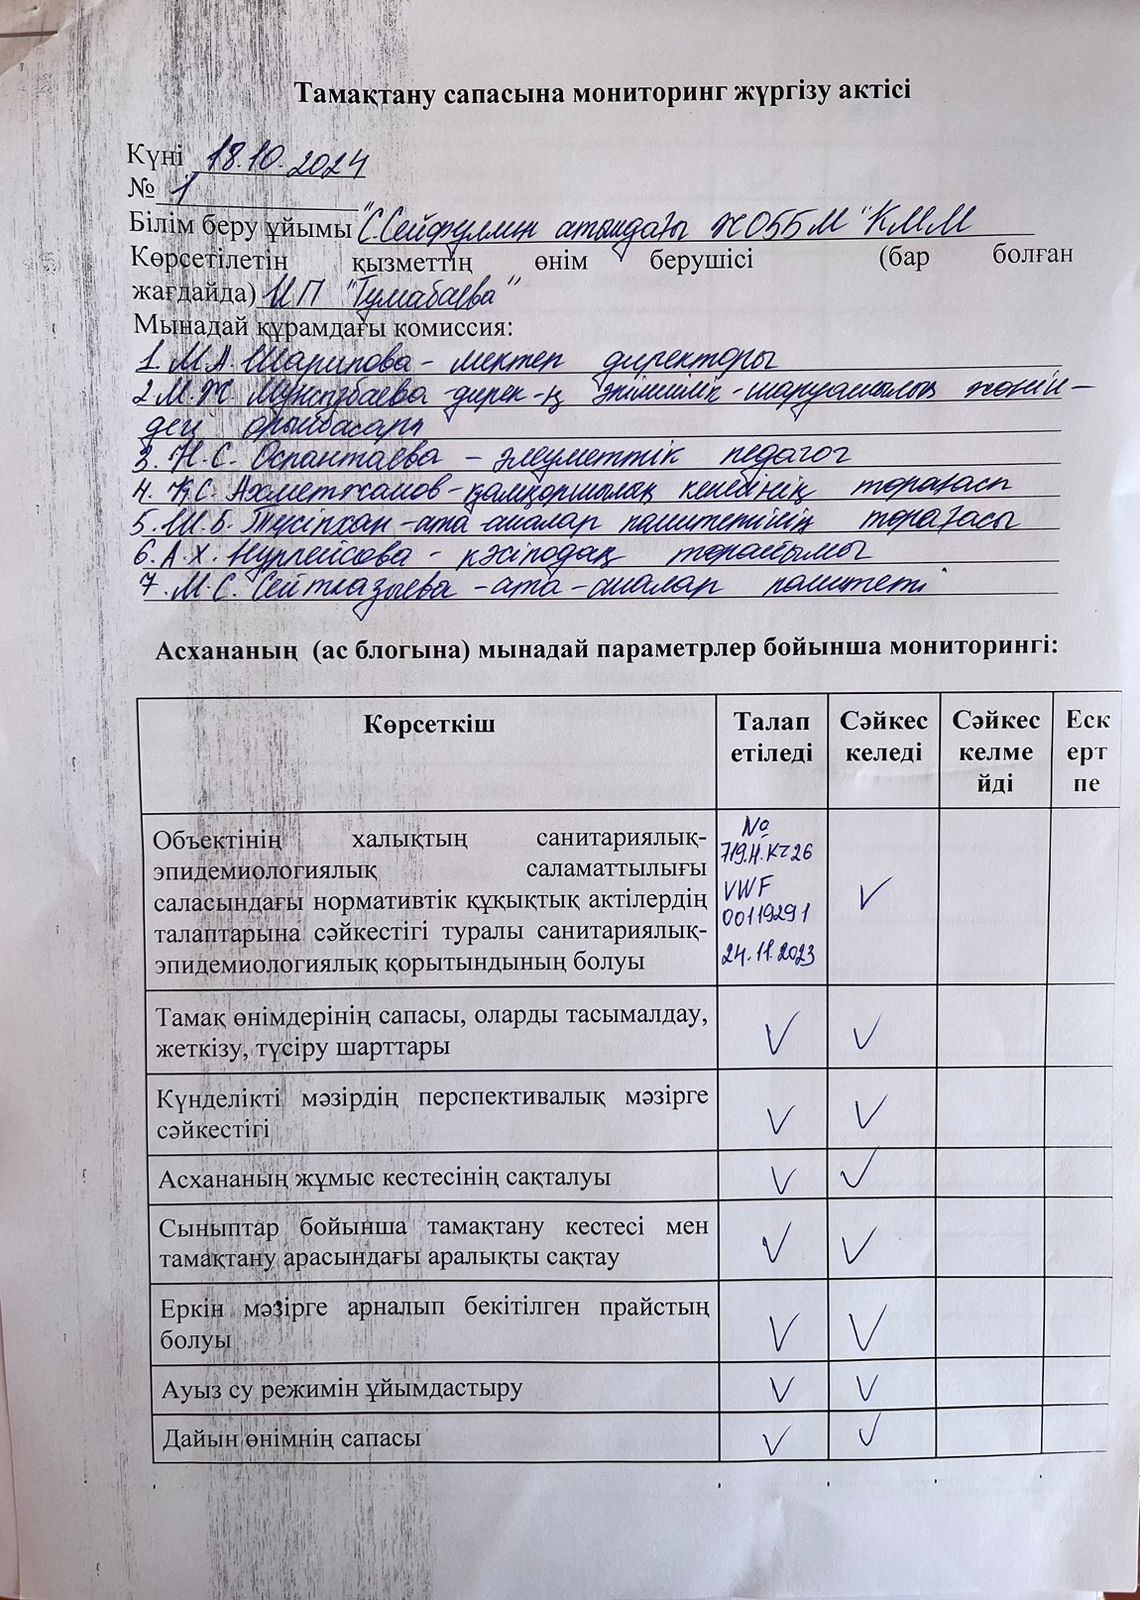 Тамақтану сапасына мониторинг жүргізу актісі
Күні 18.10.2024
№ 1
Білім беру ұйымы "С.Сейфуллин атындағы ЖОББМ" КММ
Көрсетілетін қызметтің өнім берушісі (бар болған
жағдайда) ИП "Тумабаева"
Мынадай құрамдағы комиссия:
1. М.А. Шарипова - мектеп директоры
2 М.Ж. дирек-ң әкімшілік-шаруашылық жөнін-
дегі орынбасары
3. Н.С. Оспантаева - әлеуметтік педагог
4. Қ.С. Ахметжанов - қамқоршылық кеңесінің төрағасы
5. Ш.Б. Түсіпхан - ата-аналар комитетінің төрағасы
6. А.Х. Нурпейсова - кәсіподақ төрайымы
7. М.С. Сейтказыева - ата-аналар комитеті
Асхананың (ас блогына) мынадай параметрлер бойынша мониторингі:
Көрсеткіш Талап Сәйкес Сәйкес Еск
етіледі келеді келме ерт
йді пе
Объектінің халықтың санитариялық- №
эпидемиологиялық саламаттылығы 719.Н.КZ26
саласындағы нормативтік құқықтық актілердің VWF
талаптарына сәйкестігі туралы санитариялық- 00119291
эпидемиологиялық қорытындының болуы 24.11.2023
Тамақ өнімдерінің сапасы, оларды тасымалдау,
жеткізу, түсіру шарттары
Күнделікті мәзірдің перспективалық мәзірге
сәйкестігі
Асхананың жұмыс кестесінің сақталуы
Сыныптар бойынша тамақтану кестесі мен
тамақтану арасындағы аралықты сақтау
Еркін мәзірге арналып бекітілген прайстың
болуы
Ауыз су режимін ұйымдастыру
Дайын өнімнің сапасы